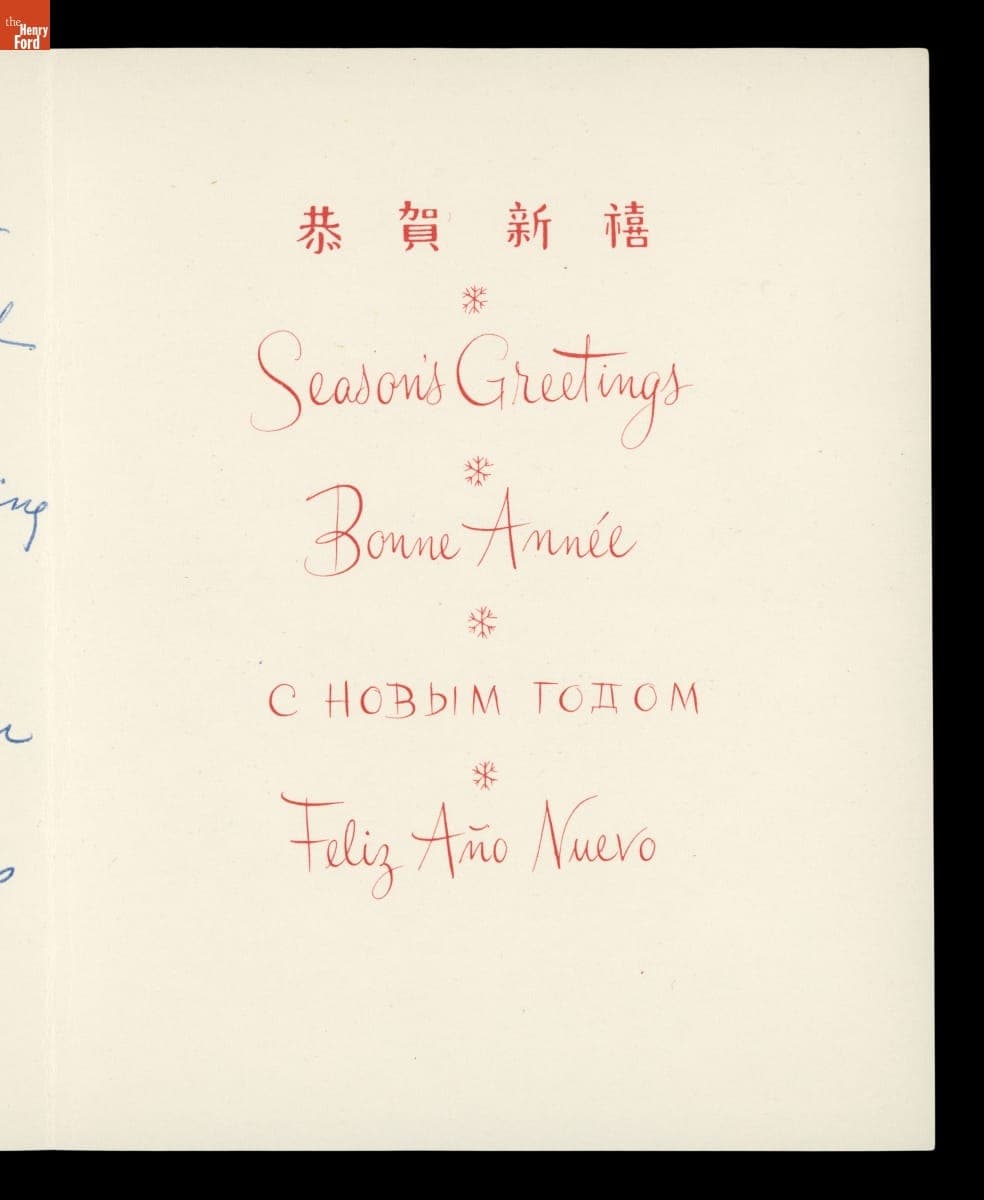 the Henry Ford
恭賀新禧
Season's Greetings
Bonne Année
С НОВЫМ ГОДОМ
Feliz Año Nuevo